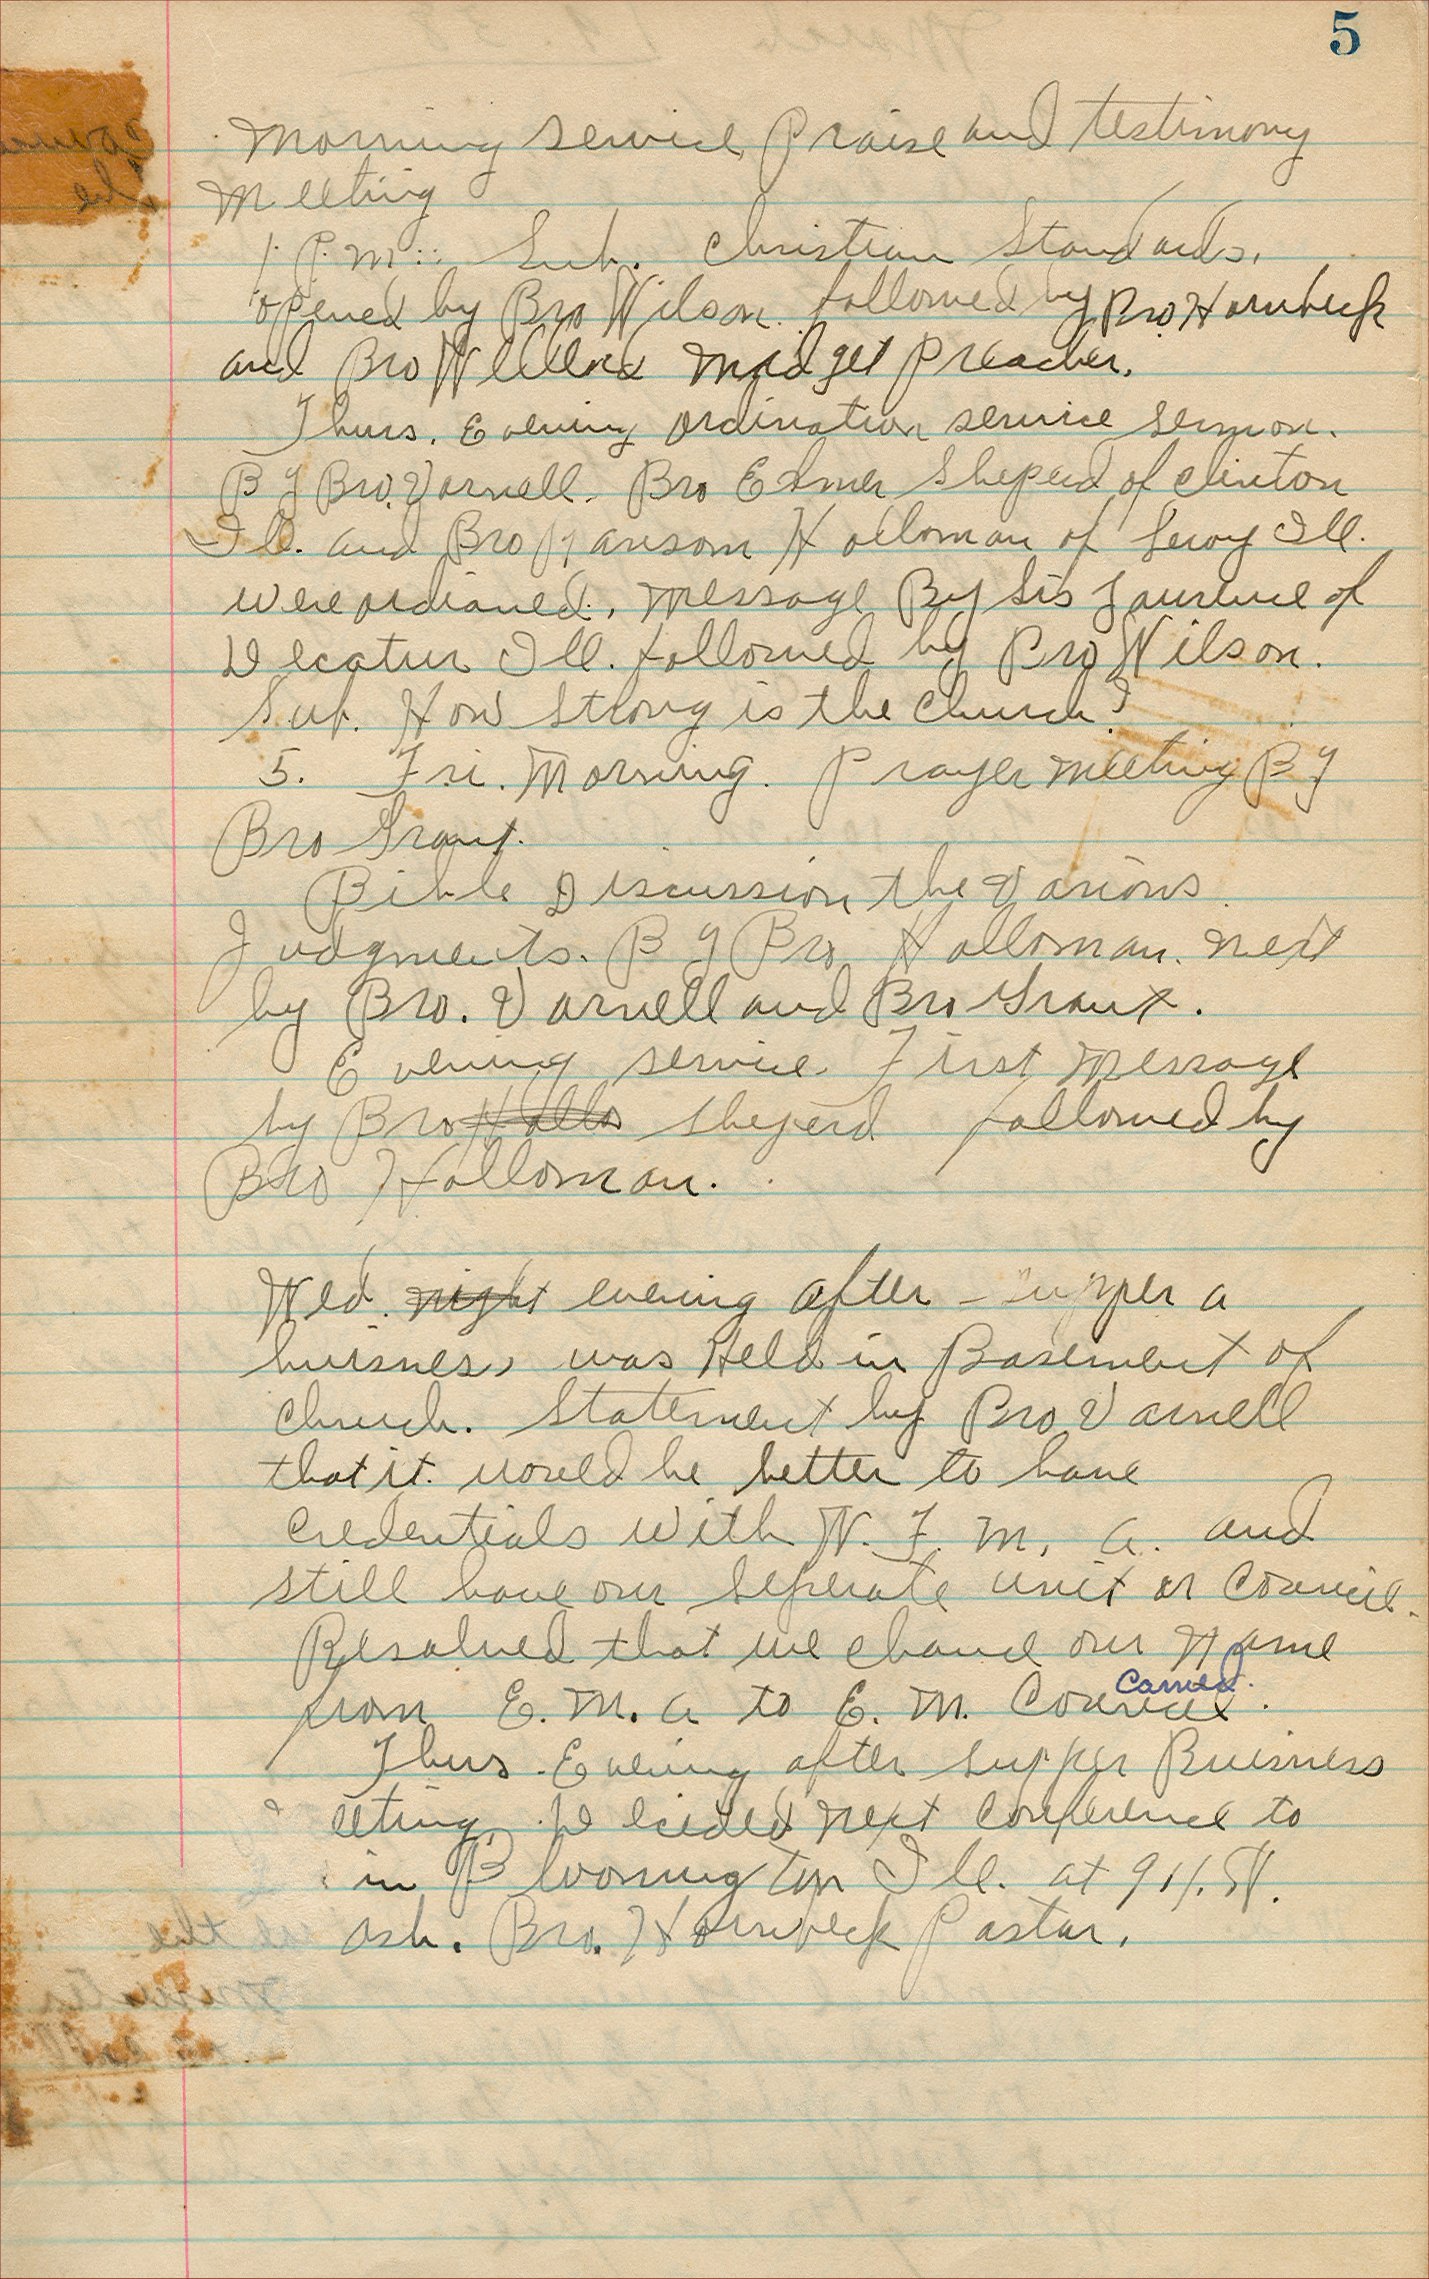 5
Morning service Praise and testimony
Meeting
1. P.M.: Sub. Christian Standards.
opened by Bro Wilson. followed by Bro Hornbeck
and Bro Willard Midget Preacher.
Thurs. Evening ordination service sermon.
By Bro. Varnell. Bro Elmer Sheperd of Clinton
Ill. and Bro Ransom Holloman of Leroy Ill.
were ordianed. Message By Sis Laurence of
Decatur Ill. followed by Bro Wilson.
Sub. How Strong is the Church?
5. Fri. Morning. Prayer meeting By
Bro Grant.
Bible Discussion the Various
Judgments. By Bro Holloman. next
by Bro. Varnell and Bro Grant.
Evening service. First message
by Bro Hollo Sheperd followed by
Bro Holloman.
Wed. night evening after supper a
buisness was Held in Basement of
church. Statement by Bro Varnell
that it would be better to have
credentials with W. F. M. A. and
still have our seperate unit or Council.
Resolved that we chance our Name
from E. M. A to E. M. Council.
Carried.
Thurs. Evening after supper Buisness
eeting. Decided next conference to
in Bloomington Ill. at 911. W.
Ash. Bro. Hornbeck Pastor.